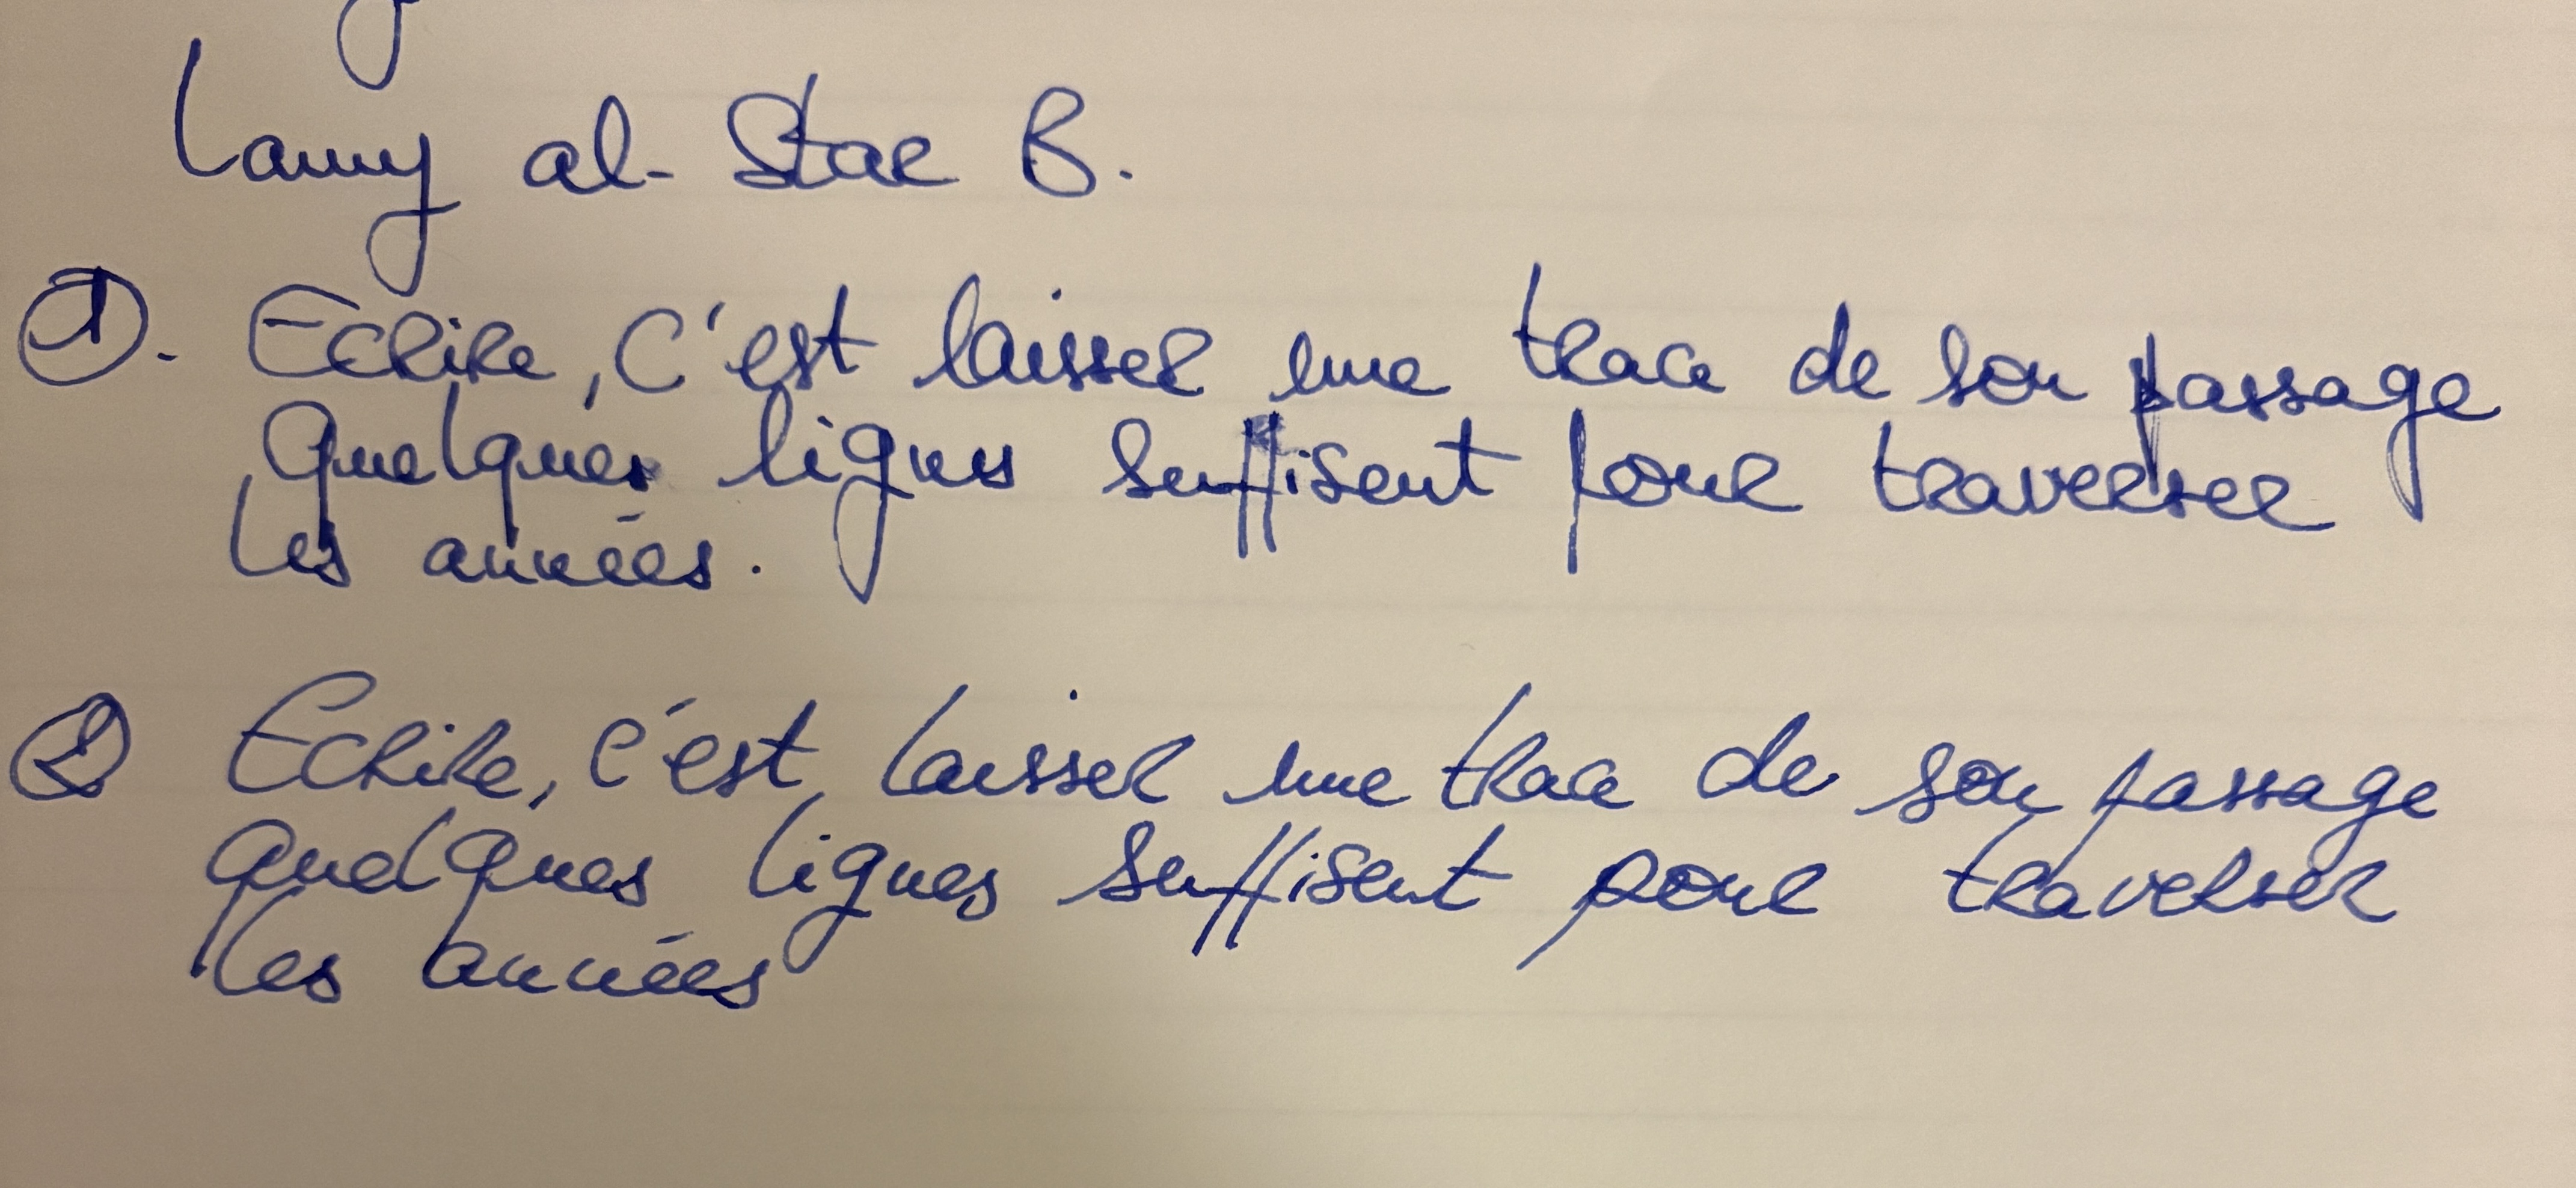 Lamy al-Star B.
①. Ecrire, c'est laisser une trace de son passage
Quelques lignes suffisent pour traverser
les années.
② Ecrire, c'est laisser une trace de son passage
quelques lignes suffisent pour traverser
les années